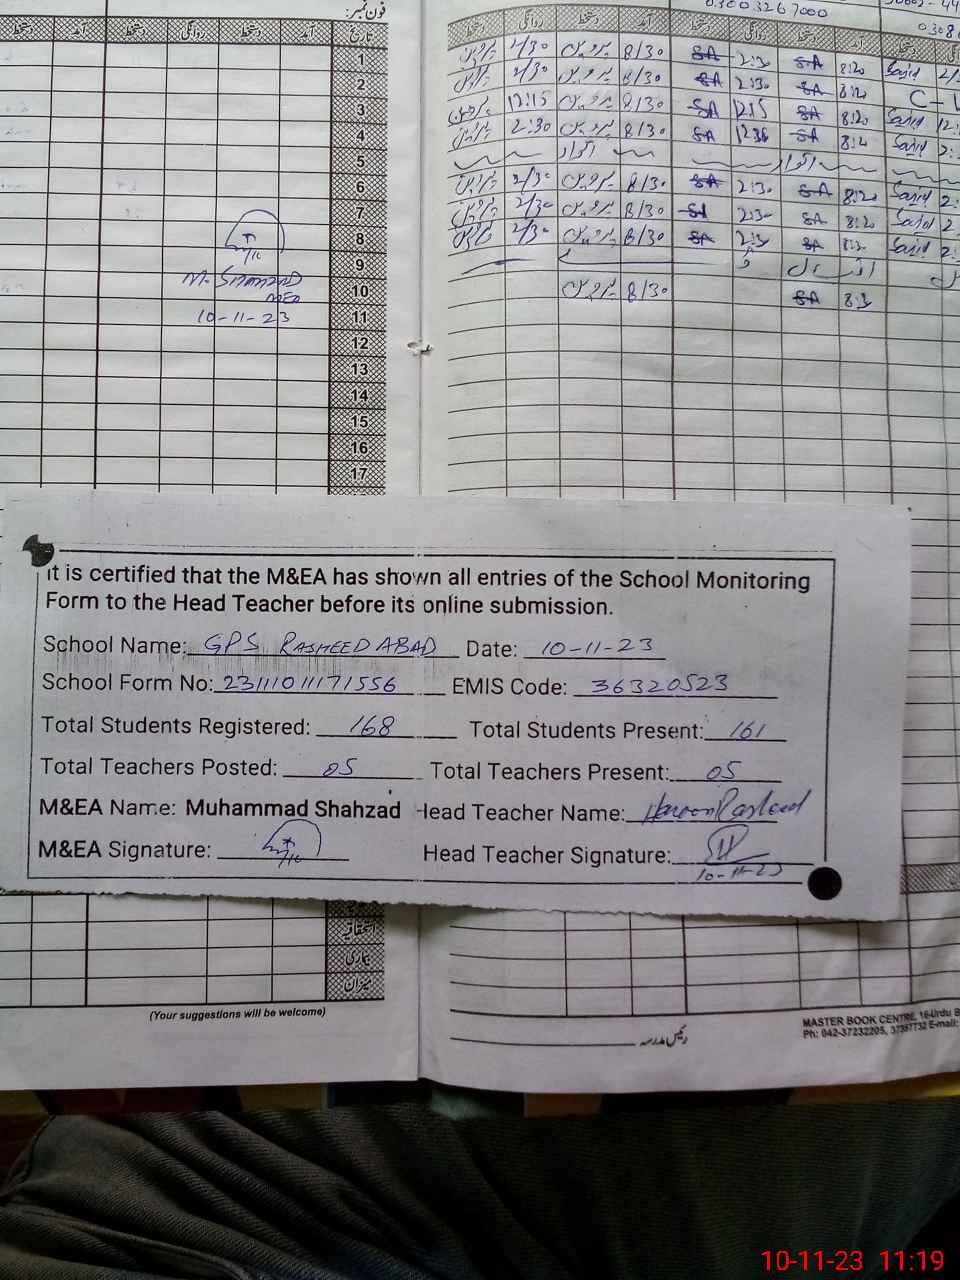 فون نمبر:
03003267000
دستخط آمد دستخط روانگی دستخط آمد تاریخ
دستخط روانگی دستخط آمد دستخط روانگی دستخط آمد دستخط
1
2/30 پروین 8/30 SA 2:30 SA 8:20 Sajid
2
2/30 پروین 8/30 SA 2:30 SA 8:20 C-L
3
12:15 پروین 8/30 SA 12:15 SA 8:20 Sajid 12:
4
2:30 پروین 8/30 SA SA Sajid 2:
5
اتوار اتوار
6
2/30 پروین 8/30 SA 2:30 SA 8:20 Sajid 2:
7
2/30 پروین 8/30 SA 2:30 SA 8:20 Sajid 2
8
2/30 پروین 8/30 SA 2:30 SA Sajid 2:
9
10
پروین 8/30 SA 8:3
11
12
13
14
15
16
17
M. SHAHZAD
MEA
10-11-23
It is certified that the M&EA has shown all entries of the School Monitoring
Form to the Head Teacher before its online submission.
School Name: GPS RASHEEDABAD Date: 10-11-23
School Form No: 2311101171556 EMIS Code: 36320523
Total Students Registered: 168 Total Students Present: 161
Total Teachers Posted: 05 Total Teachers Present: 05
M&EA Name: Muhammad Shahzad Head Teacher Name: Haroon Rasheed
M&EA Signature: Head Teacher Signature:
10-11-23
اتفاقیہ
بیماری
میزان
(Your suggestions will be welcome)
رئیس مدرسہ
MASTER BOOK CENTRE, 16-Urdu B
Ph: 042-37232205, 37357732 E-mail:
10-11-23 11:19